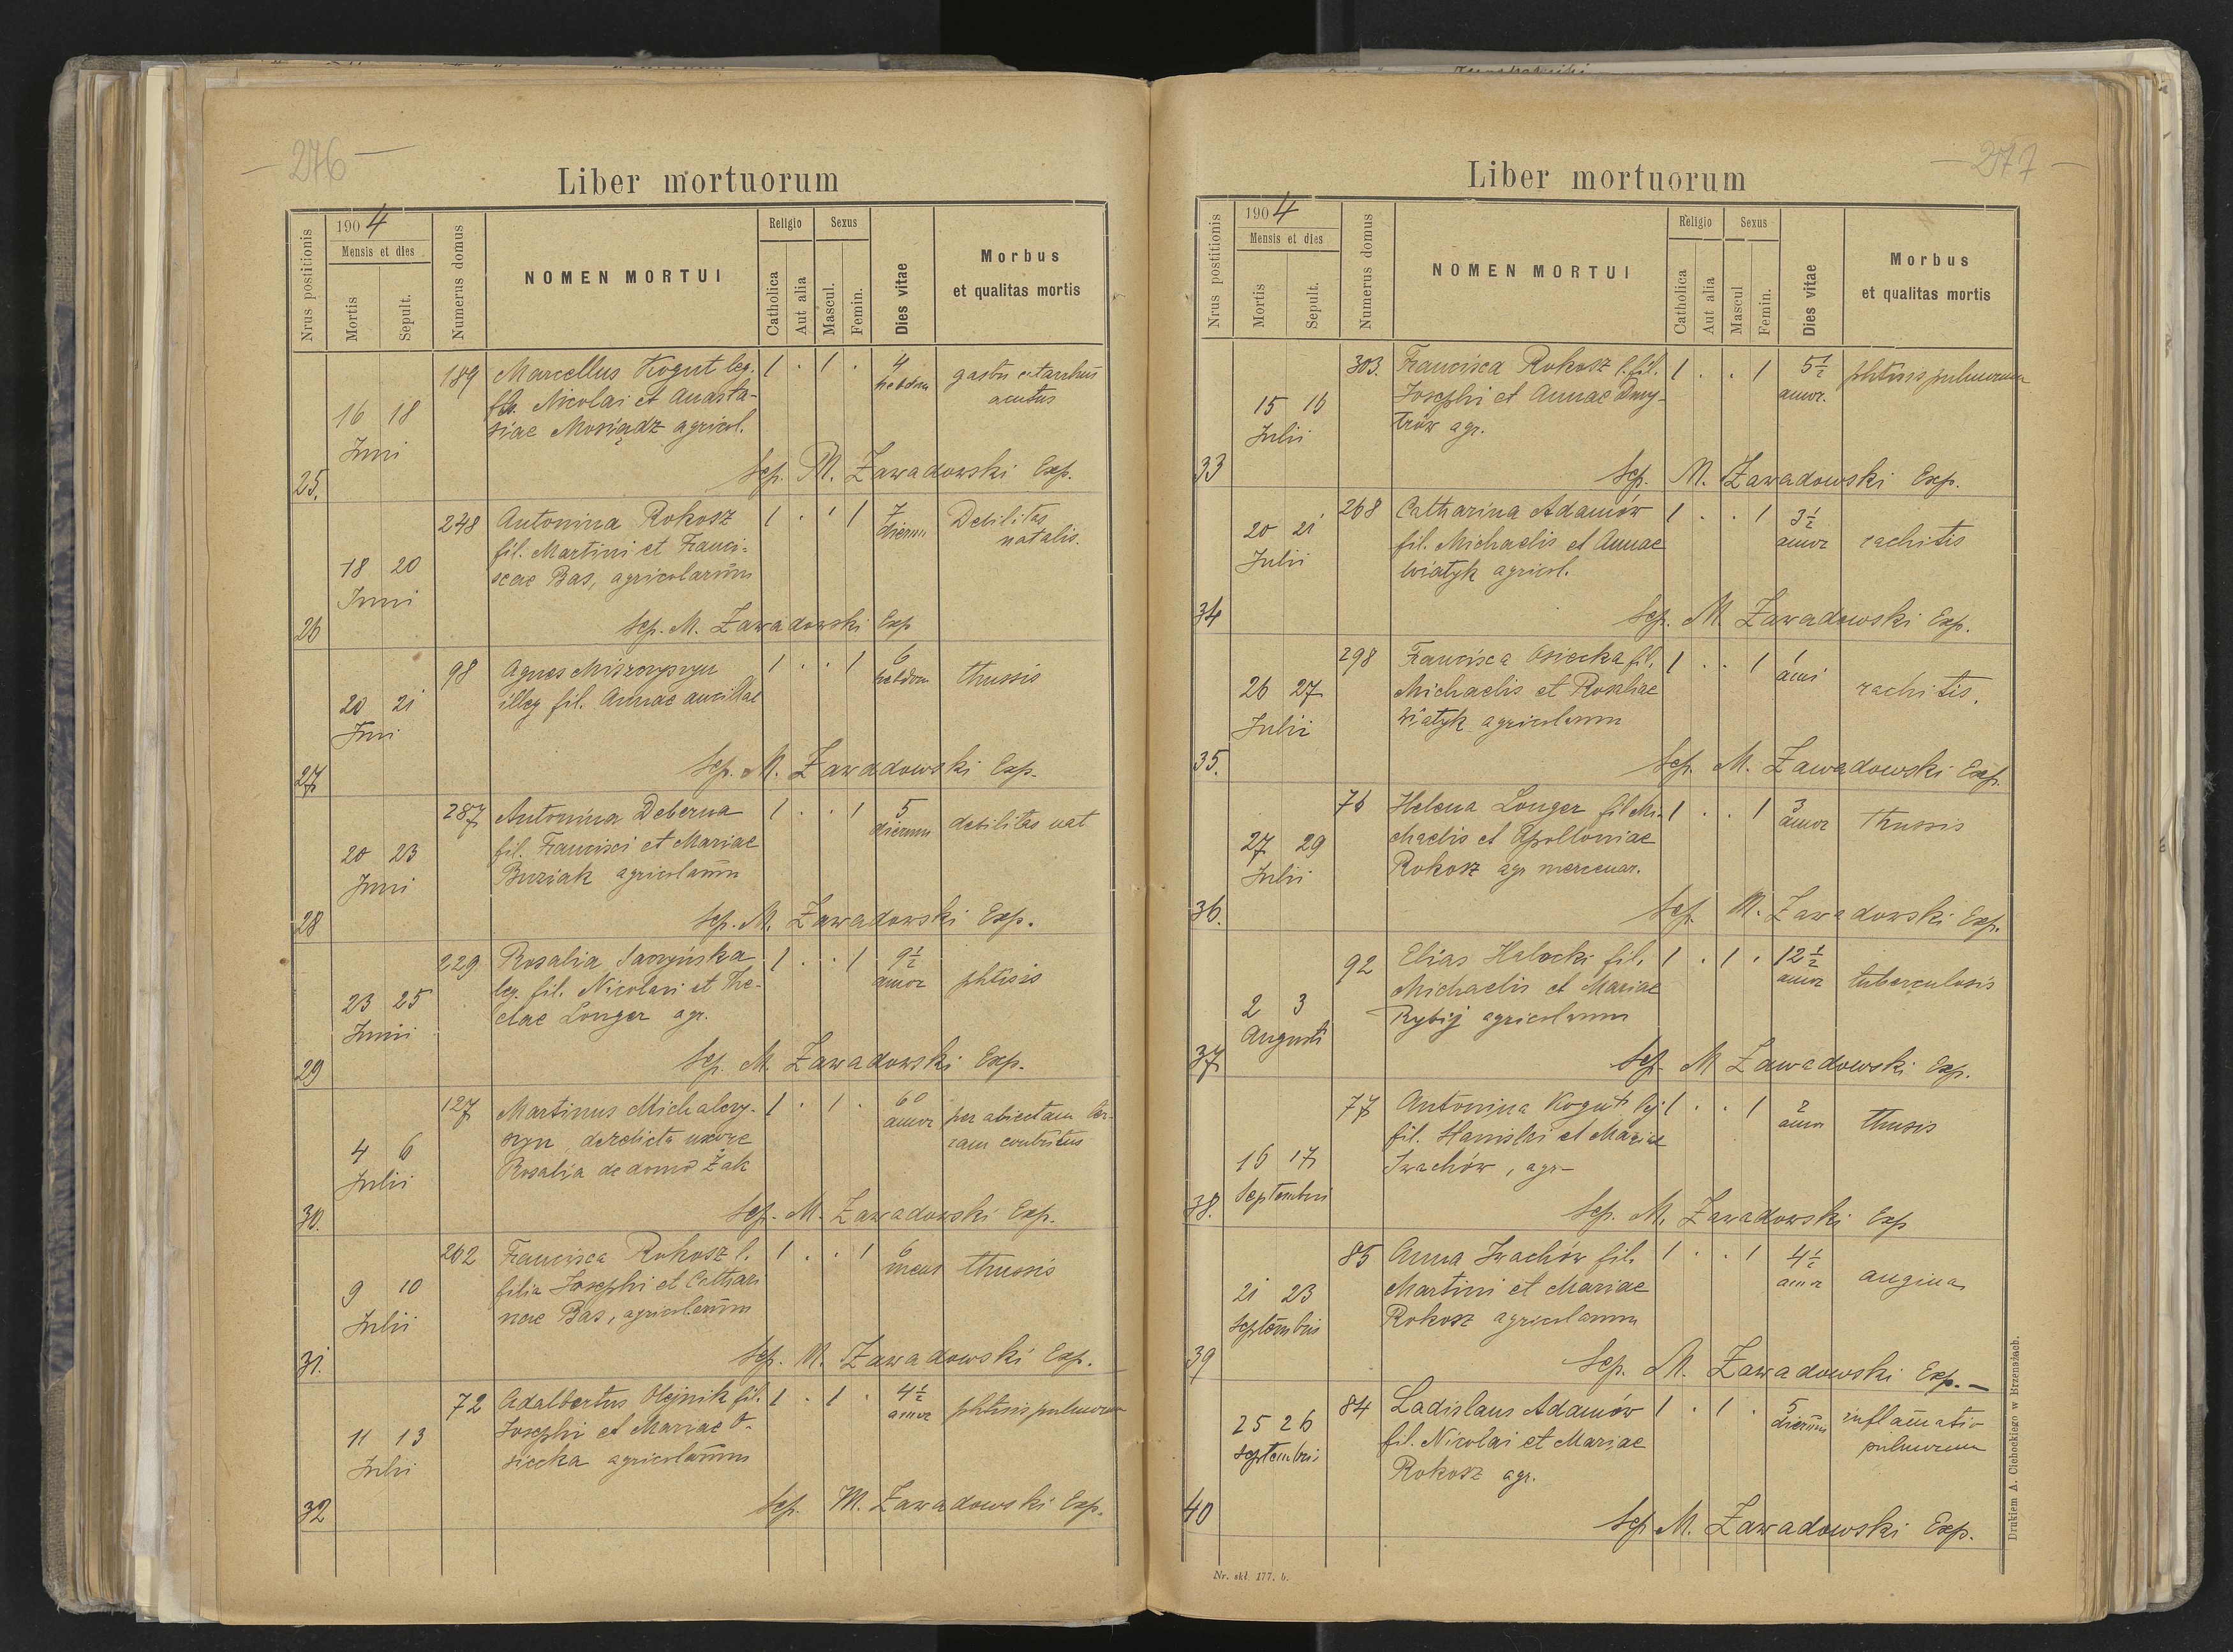 276
Liber mortuorum
Nrus postitionis
1904
Mensis et dies
Mortis
Sepult.
Numerus domus
NOMEN MORTUI
Religio
Catholica
Aut alia
Sexus
Mascul.
Femin.
Dies vitae
Morbus
et qualitas mortis
189 Marcellus Kogut leg. 1 . 1 . 4
hebdm
fil. Nicolai et Anasta-
acutus
16 18 siae Mosiądz agricol.
Juni
25. Sep. M. Zawadowski Exp.
248 Antonina Rokosz 1 . . 1 7 Debilitas
dierum natalis.
fil. Martini et Franci-
18 20 scae Bas, agricolarum
Juni
26 Sep. M. Zawadowski Exp
98 Agnes 1 . . 1 6 thussis
hebdom
20 21 illeg fil. Annae ancillae
Juni
27 Sep. M. Zawadowski Exp.
287 Antonina Deberna 1 . . 1 5 debilitas nat
dierum
20 23 fil. Francisci et Mariae
Juni Buziak agricolarum
28 Sep. M. Zawadowski Exp.
229 Rosalia 1 . . 1 9½ phtisis
annor
23 25 leg. fil. Nicolai et The-
Junii clae Longer agr.
29 Sep. M. Zawadowski Exp.
127 Martinus Michalczy- 1 . 1 . 60 per
annor contritus
4 6 szyn derelicta uxore
Julii Rosalia de domo Żak
30. Sep. M. Zawadowski Exp.
262 Francisca Rokosz l. 1 . . 1 6 thussis
mens
9 10 filia Josephi et Cathari
Julii nae Bas, agricolarum
31. Sep. M. Zawadowski Exp.
72 Adalbertus Olejnik fil. 1 . 1 . 4½ phtisis pulmonum
annor
11 13 Josephi et Mariae O-
Julii siecka agricolarum
32 Sep. M. Zawadowski Exp.
277
Liber mortuorum
Nrus postitionis
1904
Mensis et dies
Mortis
Sepult.
Numerus domus
NOMEN MORTUI
Religio
Catholica
Aut alia
Sexus
Mascul
Femin.
Dies vitae
Morbus
et qualitas mortis
303. Francisca Rokosz l. fil. 1 . . 1 5½ phtisis pulmonum
annor.
15 16 Josephi et Annae Dmy-
Julii trów agr.
33 Sep. M. Zawadowski Exp.
268 Catharina Adamów 1 . . 1 3½ rachitis
annor
20 21 fil. Michaelis et Annae
Julii Wiatyk agricol.
34 Sep. M Zawadowski Exp.
298 Francisca Osiecka fil. 1 . . 1 1 rachitis.
anni
26 27 Michaelis et Rosaliae
Julii Wiatyk agricolarum
35. Sep. M. Zawadowski Exp.
76 Helena Longer fil Mi- 1 . . 1 3 thussis
annor
27 29 chaelis et Apolloniae
Julii Rokosz agr mercenar.
36. Sep. M. Zawadowski Exp.
92 Elias Halocki fil. 1 . 1 . 12½ tuberculosis
annor
2 3 Michaelis et Mariae
Augusti Rybij agricolarum
37 Sep. M Zawadowski Exp.
77 Antonina Kogut leg 1 . . 1 2 thusis
annor
16 17 fil. Stanislai et Mariae
Septembris Iwachów, agr-
38. Sep. M. Zawadowski Exp
85 Anna Iwachów fil. 1 . . 1 4½ angina
annor
21 23 Martini et Mariae
Septembris Rokosz agricolarum
39 Sep. M. Zawadowski Exp.-
84 Ladislaus Adamów 1 . 1 . 5 inflamatio
dierum pulmonum
25 26 fil. Nicolai et Mariae
Septembris Rokosz agr.
40 Sep M. Zawadowski Exp.
Nr. skł. 177. b.
Drukiem A. Cichockiego w Brzeżanach.